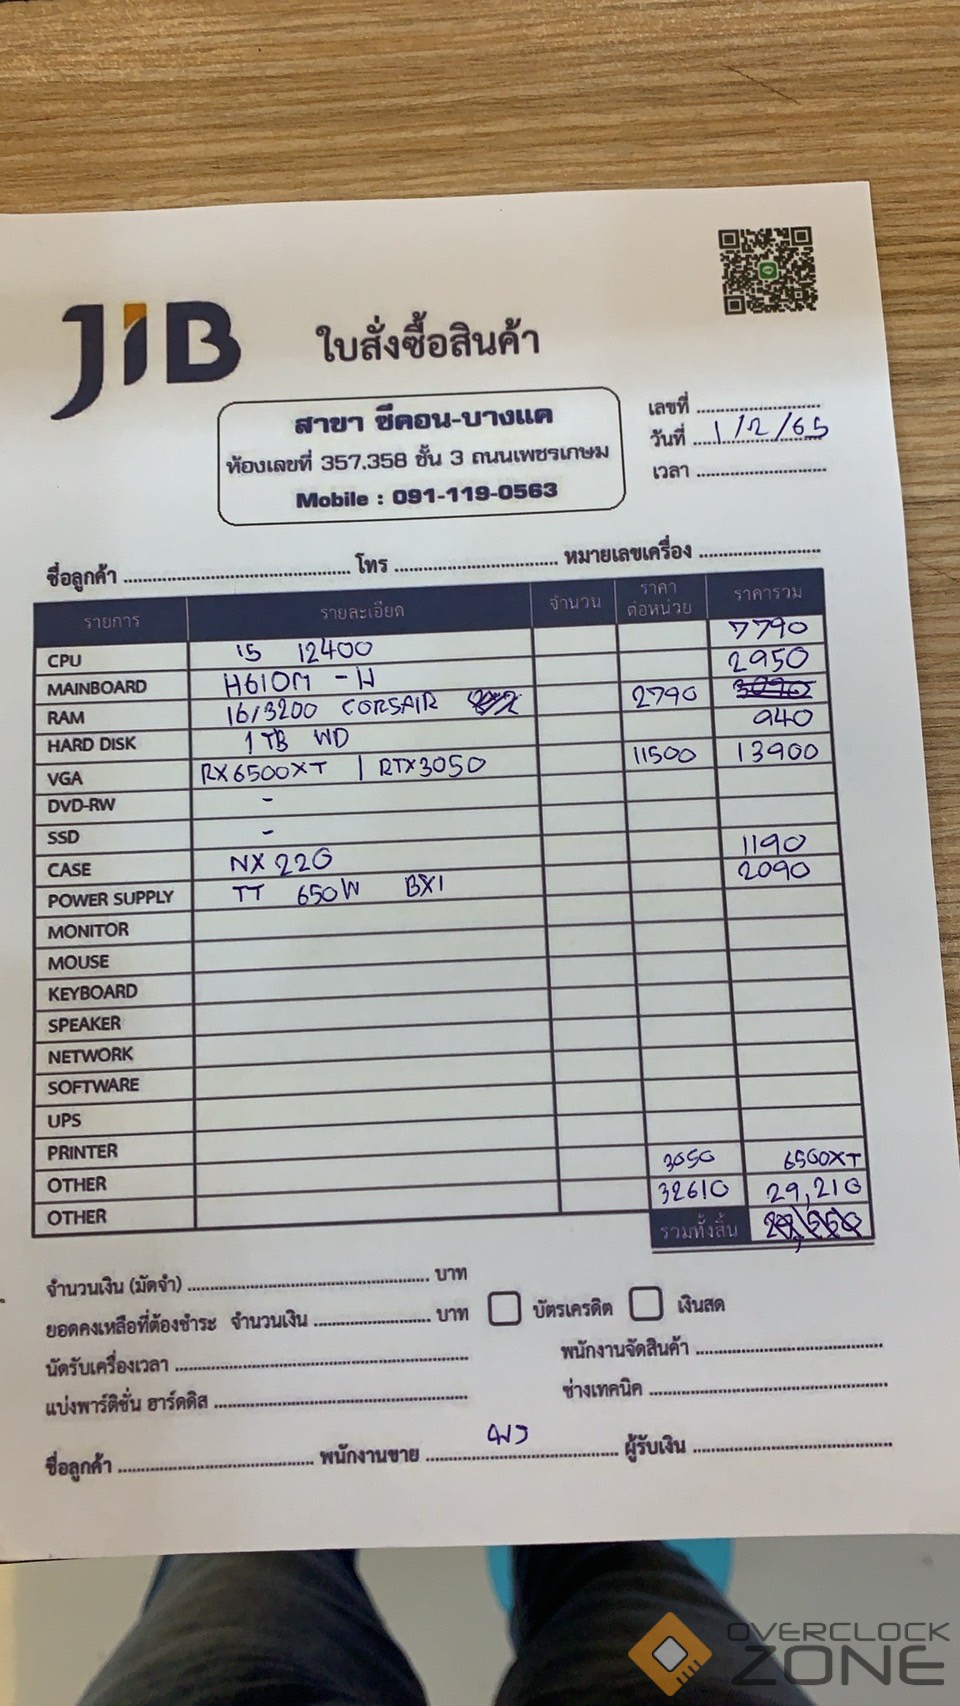 JIB
ใบสั่งซื้อสินค้า
สาขา ซีคอน-บางแค
ห้องเลขที่ 357.358 ชั้น 3 ถนนเพชรเกษม
Mobile : 091-119-0563
เลขที่
วันที่ 1/2/65
เวลา
ชื่อลูกค้า โทร หมายเลขเครื่อง
รายการ รายละเอียด จำนวน ราคาต่อหน่วย ราคารวม
CPU i5 12400 7790
MAINBOARD H610M - H 2950
RAM 16/3200 CORSAIR 2790 3090
HARD DISK 1TB WD 940
VGA RX6500XT | RTX3050 11500 13900
DVD-RW -
SSD -
CASE NX220 1190
POWER SUPPLY TT 650W BX1 2090
MONITOR
MOUSE
KEYBOARD
SPEAKER
NETWORK
SOFTWARE
UPS
PRINTER 3050 6500XT
OTHER 32610 29,210
OTHER รวมทั้งสิ้น
จำนวนเงิน (มัดจำ) บาท
ยอดคงเหลือที่ต้องชำระ จำนวนเงิน บาท บัตรเครดิต เงินสด
นัดรับเครื่องเวลา พนักงานจัดสินค้า
แบ่งพาร์ติชั่น ฮาร์ดดิส ช่างเทคนิค
ชื่อลูกค้า พนักงานขาย ผู้รับเงิน
OVERCLOCK
ZONE